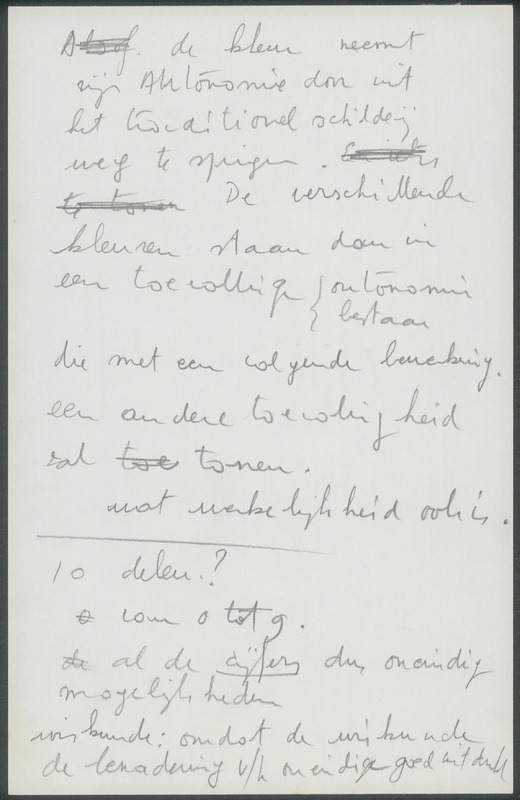 Alsof de kleur neemt
zijn Autonomie door uit
het traditionel schilderij
weg te springen. En iets
te tonen De verschillende
kleuren staan dan in
een toevallige { autonomie
{ bestaan
die met een volgende bewerking.
een andere toevalligheid
zal toe tonen.
wat werkelijkheid ook is.
10 delen.?
o van 0 tot 9.
de al de cijfers dus oneindig
mogelijkheden
wiskunde: omdat de wiskunde
de benadering v/h oneindige goed uitdrukt